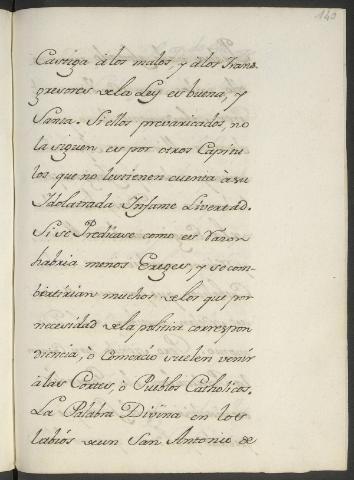 140
Castiga à los malos, y à los trans-
gresores de la Ley es buena, y
Santa. Si ellos prevaricados, no
la siguen es por otros Capitu
los que no les tienen cuenta à su
Idolatrada Infame Livertad.
Si se Predicase como es razon
habria menos Ereges, y se com-
birtirian muchos de los que, por
necesidad de la politica correspon
diencia, ò Comercio suelen venir
à las Cortes, ò Pueblos Catholicos.
La Palabra Divina en los
labiós de un San Antonio de